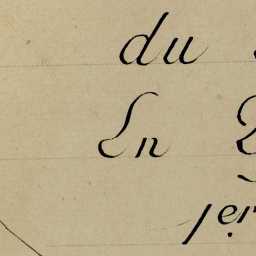 du
En
1er